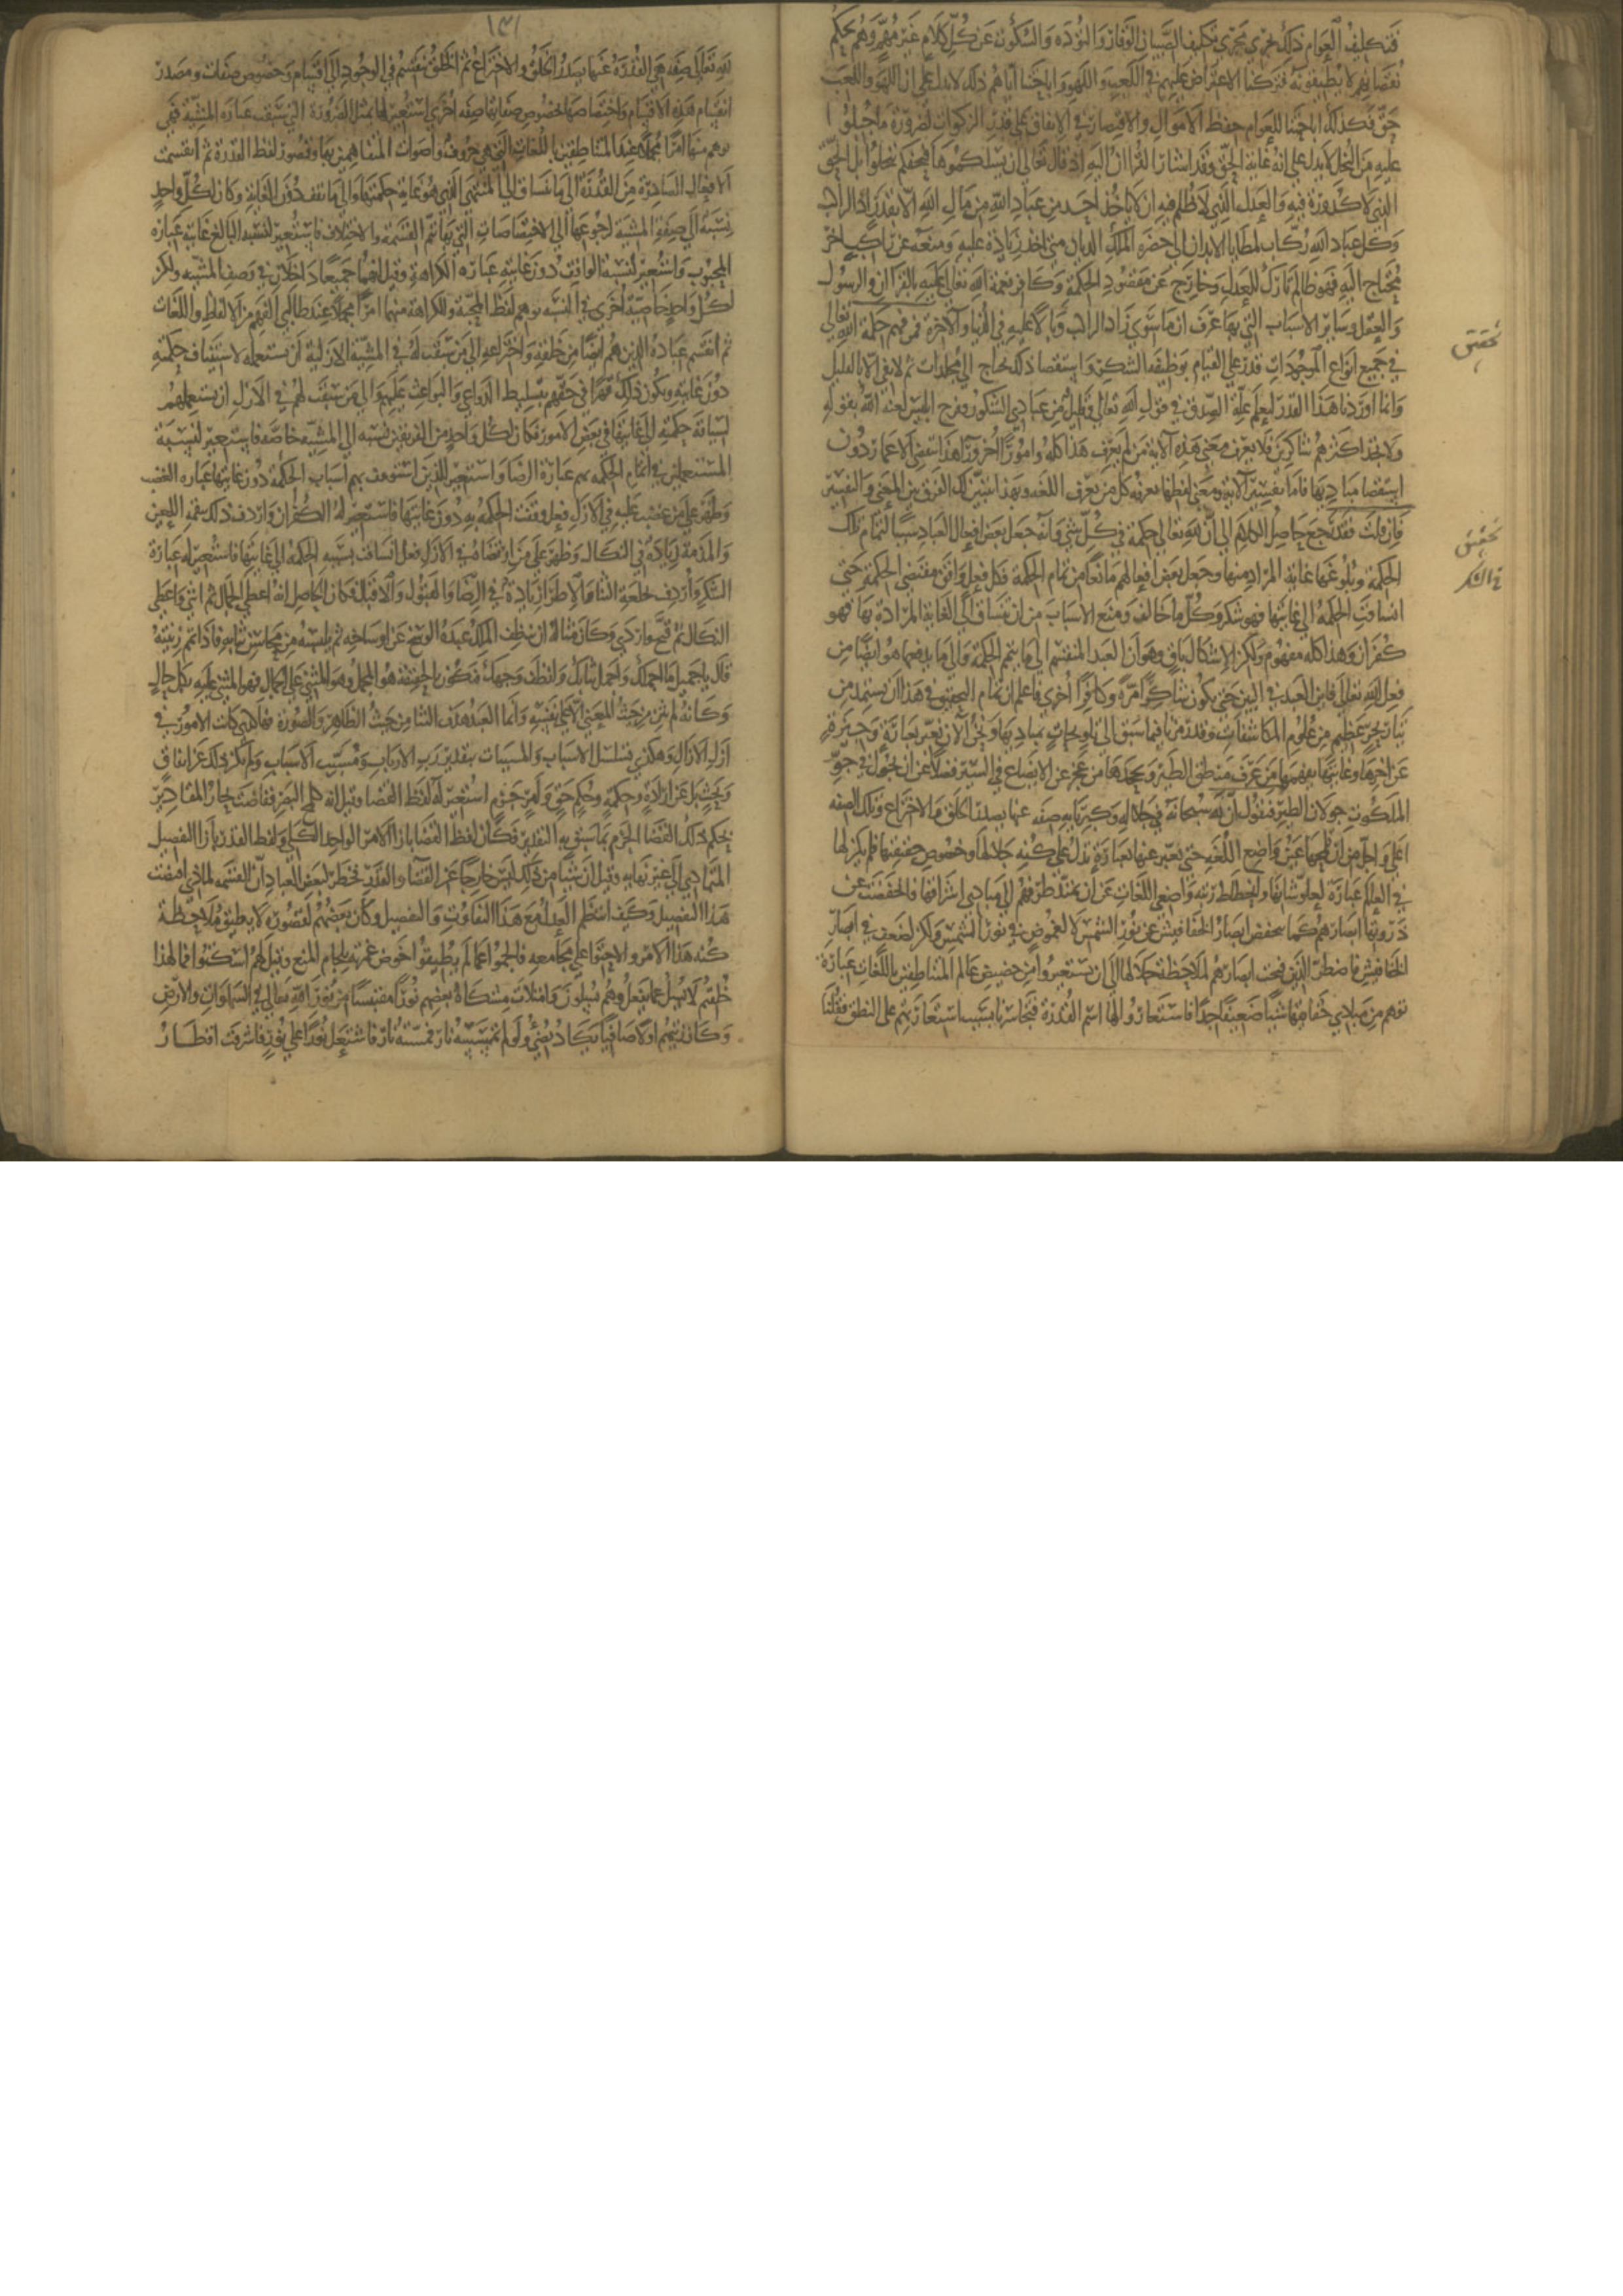 فتكليف العوام ذلك يجري مجرى تكليف الصبيان الوقار والتؤدة والسكوت عن كل كلام غير مهم وهم بحكم
نقصانهم لا يطيقونه فتركنا الاعتراض عليهم في اللعب واللهو واباحتنا اياهم ذلك لا يدل على ان اللهو واللعب
حق فكذلك اباحتنا للعوام حفظ الاموال والاقتصار في الانفاق على قدر الزكوات لضرورة ما جبلوا
عليه من البخل لا يدل على انه غاية الحق وقد اشار القران اليه اذ قال تعالى ان يسئلكموها فيحفكم تبخلوا بل الحق
الذي لا كدورة فيه والعدل الذي لا ظلم فيه ان لا ياخذ احد من عباد الله من مال الله الا بقدر زاد الراكب
وكل عباد الله ركاب لمطايا الابدان الى حضرة الملك الديان فمن اخذ زيادة عليه ومنعه عن راكب اخر
محتاج اليه فهو ظالم تارك للعدل وخارج عن مقصود الحكمة وكافر نعمة الله تعالى عليه بالقران والرسول
والعقل وساير الاسباب التي بها عرف ان ما سوى زاد الراكب وبال عليه في الدنيا والاخرة فمن فهم حكمة الله تعالى
في جميع انواع الموجودات قدر على القيام بوظيفة الشكر واستقصا ذلك يحتاج الى مجلدات ثم لا يفي الا بالقليل
وانما اوردنا هذا القدر ليعلم علة الصدق في قول الله تعالى وقليل من عبادي الشكور وفرح ابليس لعنه الله بقوله
ولا تجد اكثرهم شاكرين فلا يعرف معنى هذه الاية من لم يعرف هذا كله وامورا اخر وراء هذا تنقضي الاعمار دون
استقصا مباديها فاما تفسير الاية ومعنى لفظها يعرفه كل من يعرف اللغة وبهذا يتبين لك الفرق بين المعنى والتفسير
فان قلت فقد رجع حاصل الكلام الى ان لله تعالى حكمة في كل شي وانه جعل بعض افعال العباد سببا لتمام تلك
الحكمة وبلوغها غاية المراد منها وجعل بعض افعالهم مانعا من تمام الحكمة فكل فعل وافق مقتضى الحكمة حتى
انساقت الحكمة الى غايتها فهو شكر وكل ما خالف ومنع الاسباب من ان تنساق الى الغاية المرادة بها فهو
كفران وهذا كله مفهوم ولكن الاشكال باق وهو ان العبد المنقسم الى ما يتم الحكمة والى ما يدفعها هو ايضا من
فعل الله تعالى فاين العبد في البين حتى يكون شاكرا مرة وكافرا اخرى فاعلم ان تمام التحقيق في هذا ان يستمد من
تيار بحر عظيم من علوم المكاشفات وقد رمزنا فيما سبق الى تلويحات بمباديها ونحن الان نعبر بعبارة وجيزة
عن اخرها وغايتها يفهمها من عرف منطق الطير ويجحدها من عجز عن الايضاع في السير فضلا عن ان يجول في جو
الملكوت جولان الطير فنقول ان لله سبحانه في جلاله وكبريائه صفة عنها يصدر الخلق والاختراع وتلك الصفة
اعلى واجل من ان تلمحها عين واضع اللغة حتى يعبر عنها بعبارة تدل على كنه جلالها وخصوص حقيقتها فلم يكن لها
في العالم عبارة لعلو شانها وانحطاط رتبة واضعي اللغات عن ان يمتد طرف فهم الى مبادي اشراقها فانخفضت عن
ذروتها ابصارهم كما تنخفض ابصار الخفافيش عن نور الشمس لا لغموض في نور الشمس ولكن لضعف في ابصار
الخفافيش فاضطر الذين فتحت ابصارهم لملاحظة جلالها الى ان يستعيروا من حضيض عالم المتناطقين باللغات عبارة
توهم من مبادي حقايقها شيا ضعيفا جدا فاستعاروا لها اسم القدرة فتجاسرنا بسبب استعارتهم على النطق فقلنا
تحقيق
تحقيق
في الشكر
١٤١
لله تعالى صفة هي القدرة عنها يصدر الخلق والاختراع ثم الخلق ينقسم في الوجود الى اقسام وخصوص صفات ومصدر
انقسام هذه الاقسام واختصاصها بخصوص صفاتها صفة اخرى استعير لها بمثل الضرورة التي سبقت عبارة المشية فهي
توهم منها امرا مجملا عند المتناطقين باللغات التي هي حروف واصوات المتفاهمين بها وقصور لفظ القدرة ثم انقسمت
الافعال الصادرة من القدرة الى ما تنساق الى المنتهى الذي هو غاية حكمتها والى ما تقف دون الغاية وكان لكل واحد
نسبة الى صفة المشية لرجوعها الى الاختصاصات التي بها تتم القسمة والاختلاف فاستعير لنسبة البالغ غايته عبارة
المحبوب واستعير لنسبة الواقف دون غايته عبارة الكراهة وقيل انهما جميعا داخلان في وصف المشية ولكن
لكل واحد خاصية اخرى في النسبة توهم لفظ المحبة والكراهة منهما امرا مجملا عند طالبي الفهم من الالفاظ واللغات
ثم انقسم عباده الذين هم ايضا من خلقه واختراعه الى من سبقت له في المشية الازلية ان يستعمله لاستيقاف حكمته
دون غايتها ويكون ذلك قهرا في حقهم بتسليط الدواعي والبواعث عليهم والى من سبقت لهم في الازل ان يستعملهم
لسياقة حكمته الى غايتها في بعض الامور فكان لكل واحد من الفريقين نسبة الى المشية خاصة فاستعير لنسبة
المستعملين في اتمام الحكمة بهم عبارة الرضا واستعير للذين استوقف بهم اسباب الحكمة دون غايتها عبارة الغضب
وظهر على من غضب عليه في الازل فعل وقفت الحكمة به دون غايتها فاستعير له الكفران واردف ذلك بنقمة اللعن
والمذمة زيادة في النكال وظهر على من ارتضاه في الازل فعل انساقت بسببه الحكمة الى غايتها فاستعير له عبارة
الشكر واردف بخلعة الثنا والاطرا زيادة في الرضا والقبول والاقبال فكان الحاصل انه اعطى الجمال ثم اثنى واعطى
النكال ثم قبح واردى وكان مثاله ان ينظف الملك عبده الوسخ عن اوساخه ثم يلبسه من محاسن ثيابه فاذا تمم زينته
قال يا جميل ما اجملك واجمل ثيابك وانظف وجهك فيكون بالحقيقة هو المجمل وهو المثني على الجمال فهو المثني عليه بكل حال
وكانه لم يثن من حيث المعنى الا على نفسه وانما العبد هدف الثنا من حيث الظاهر والصورة فهكذى كانت الامور في
ازل الازال وهكذى تتسلسل الاسباب والمسببات بتقدير رب الارباب ومسبب الاسباب ولم يكن ذلك عن اتفاق
وبخت بل عن ارادة وحكمة وحكم حق وامر جزم استعير له لفظ القضا وقيل انه كلمح البصر ففاضت بحار المقادير
بحكم ذلك القضا الجزم بما سبق به التقدير فكان لفظ القضا بازا الامر الواحد الكلي ولفظ القدر بازا التفصيل
المتمادي الى غير نهاية وقيل ان شيا من ذلك ليس خارجا عن القضا والقدر فخطر لبعض العباد ان القسمة لماذى اقتضت
هذا التفصيل وكيف انتظم العدل مع هذا التفاوت والتفصيل وكان بعضهم لقصوره لا يطيق ملاحظة
كنه هذا الامر والاحتوا على مجامعه فالجموا عما لم يطيقوا خوض غمرته بلجام المنع وقيل لهم اسكتوا فما لهذا
خلقتم لا يسئل عما يفعل وهم يسئلون وامتلات مشكاة بعضهم نورا مقتبسا من نور الله تعالى في السموات والارض
وكان زيتهم اولا صافيا يكاد يضئ ولو لم تمسسه نار فمسته نار فاشتعل نورا على نور فاشرقت اقطار